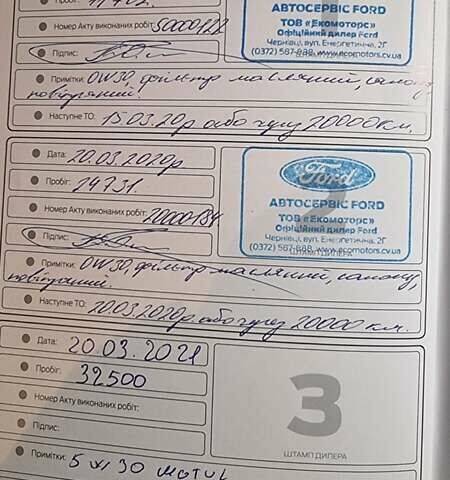 Номер Акту виконаних робіт:
Підпис:
Примітки: 0W30, фільтр масляний, салону,
повітряний.
Наступне ТО: 15.03.20р або чугез 20000 км.
АВТОСЕРВІС FORD
ТОВ «Екомоторс»
Офіційний дилер Ford
Чернівці, вул. Енергетична, 2Г
(0372) 567-888, www.ecomotors.cv.ua
Дата: 20.03.2020р
Пробіг: 24731.
Номер Акту виконаних робіт: 20000184
Підпис:
Примітки: 0W30, фільтр масляний, салону,
повітряний.
Наступне ТО: 20.03.2020р. або чугез 20000 км.
Ford
АВТОСЕРВІС FORD
ТОВ «Екомоторс»
Офіційний дилер Ford
Чернівці, вул. Енергетична, 2Г
(0372) 567-888, www.ecomotors.cv.ua
ШТАМП ДИЛЕРА
Дата: 20.03.2021
Пробіг: 32500
Номер Акту виконаних робіт:
Підпис:
Примітки: 5W30 MOTUL
3
ШТАМП ДИЛЕРА